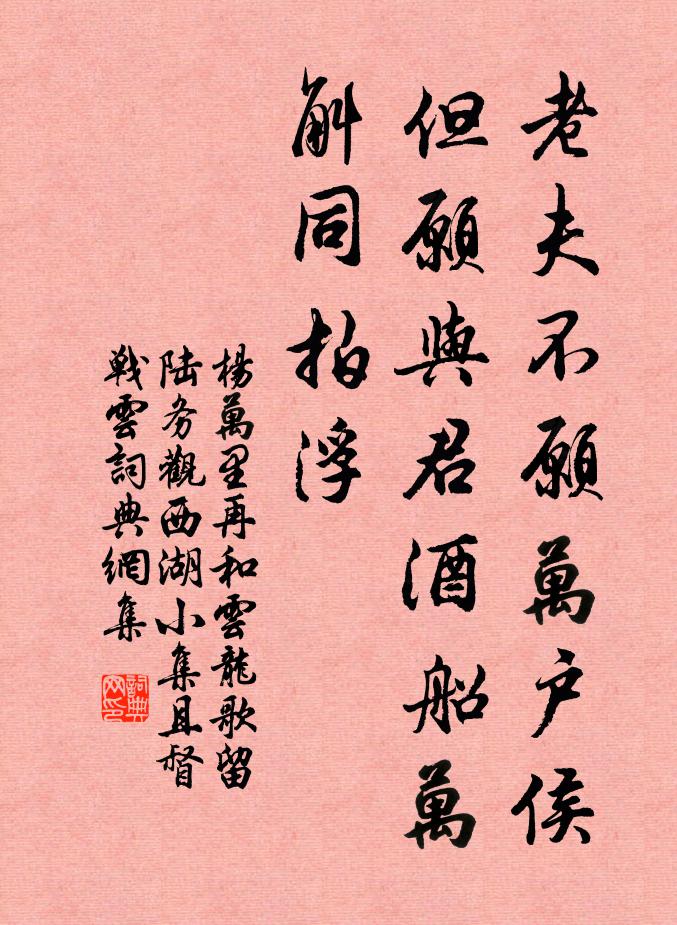 老夫不願萬户侯
但願與君酒船萬
斛同拍浮
楊萬里再和雲龍歌留
陆务觀西湖小集且督
戰雲詞典網集
詞典网印